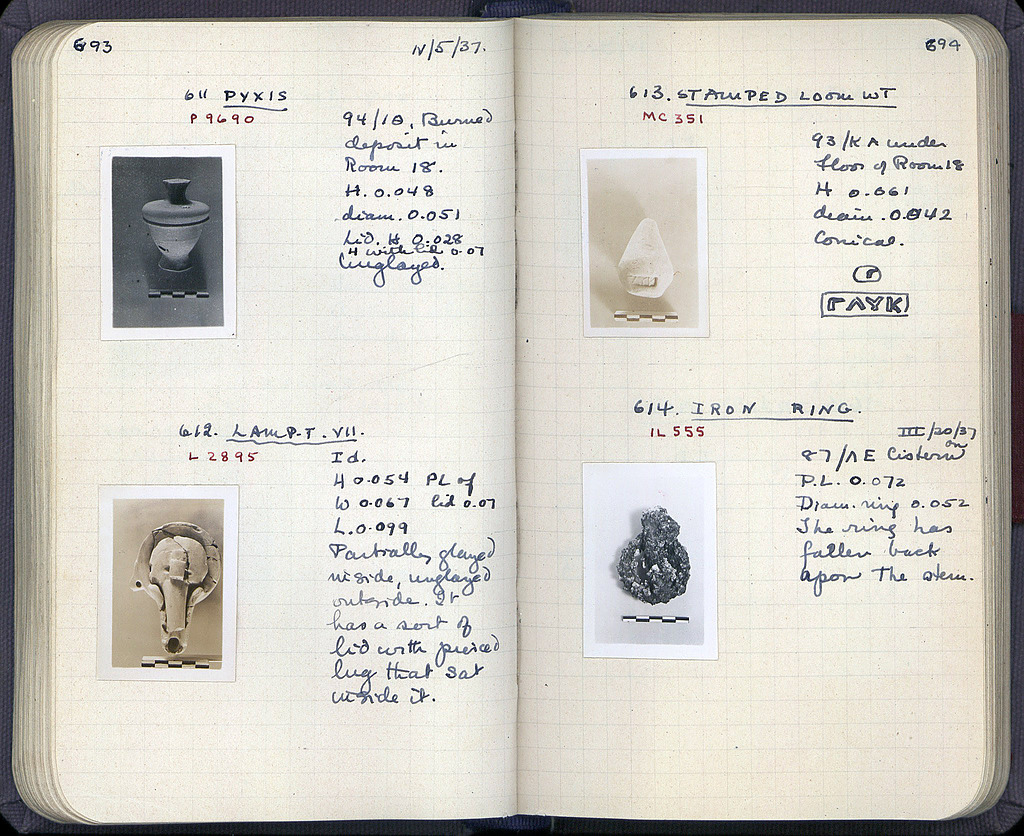 693
IV/5/37.
611 PYXIS
P 9690
94/ΙΘ, Burned
deposit in
Room 18.
H. 0.048
diam. 0.051
Lid. H 0.028
H with lid 0.07
Unglazed.
612. LAMP. T. VII.
L 2895
Id.
H 0.054 PL of
W 0.067 lid 0.07
L. 0.099
Partially glazed
inside, unglazed
outside. It
has a sort of
lid with pierced
lug that sat
inside it.
694
613. STAMPED LOOM WT
MC 351
93/ΚΑ under
floor of Room 18
H 0.061
diam. 0.042
Conical.
ΓΛΥΚ
614. IRON RING.
IL 555
III/20/37
87/ΛΕ Cistern
on
P.L. 0.072
Diam. ring 0.052
The ring has
fallen back
upon The stem.